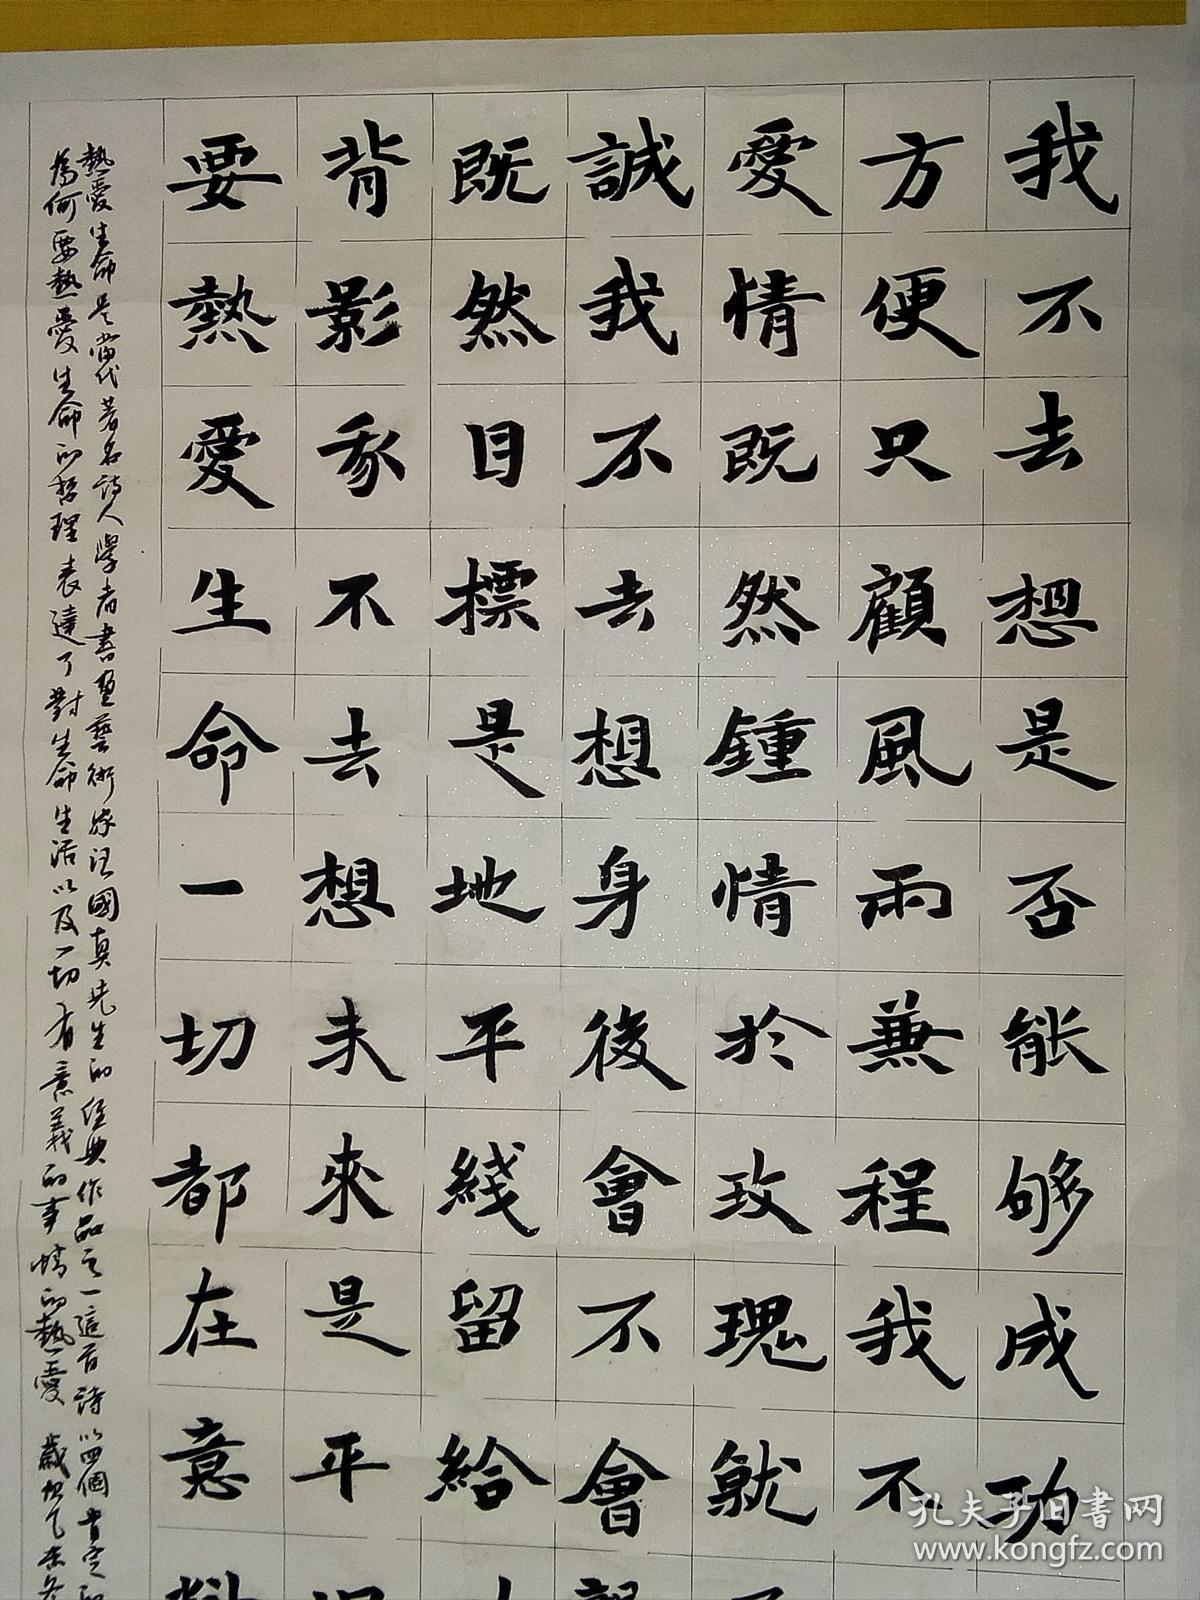 我不去想是否能够成功
方便只顧風雨兼程我不
愛情既然鍾情於玫瑰就
誠我不去想身後會不會
既然目標是地平綫留給
背影我不去想未來是平
要熱愛生命一切都在意
熱愛生命是當代著名詩人學者書畫藝術家汪國真先生的經典作品之一這首詩以四個肯定的
為何要熱愛生命的哲理表達了對生命生活以及一切有意義的事情的熱愛 歲次乙未冬
孔夫子旧书网
www.kongfz.com